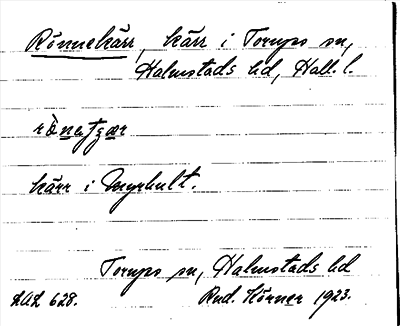 Rönnekärr, kärr i Torups sn,
Halmstads hd, Hall. l.
kärr i Myrhult.
Torups sn, Halmstads hd
LUL 628. Rud. Körner 1923.